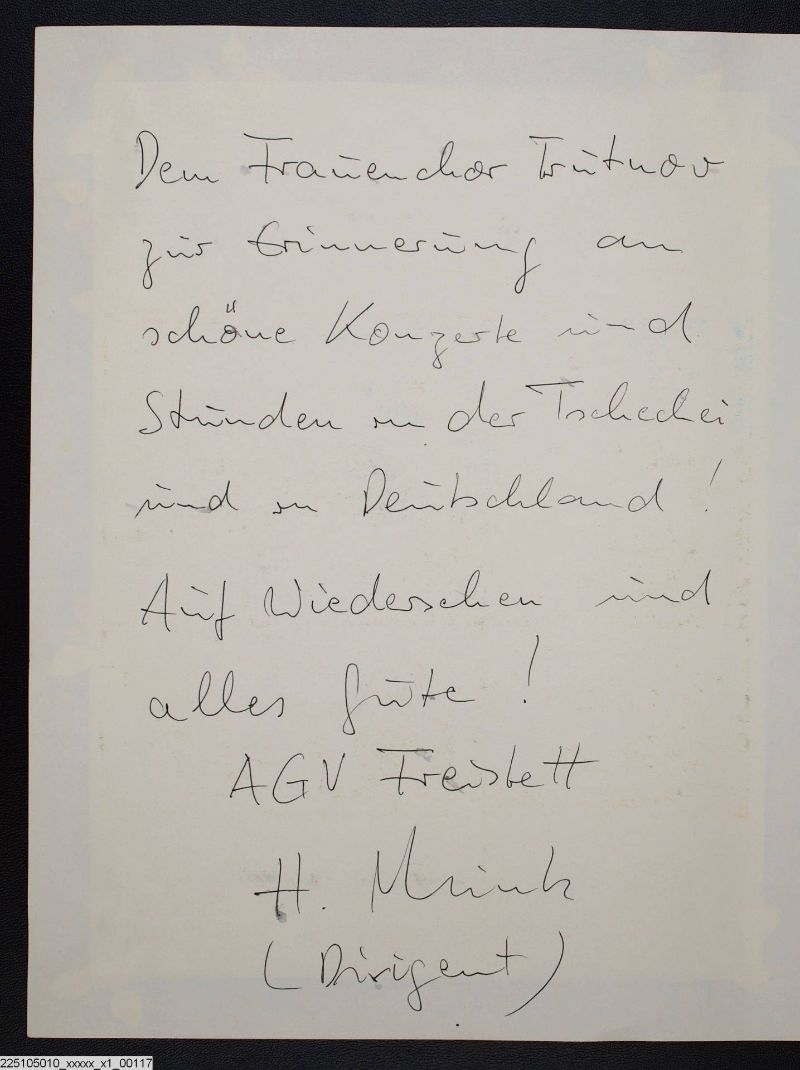 Dem Frauenchor Trutnov
zur Erinnerung an
schöne Konzerte und
Stunden in der Tschechei
und in Deutschland!
Auf Wiedersehen und
alles Gute!
AGV Freistett
H.
(Dirigent)
225105010_xxxxx_x1_00117